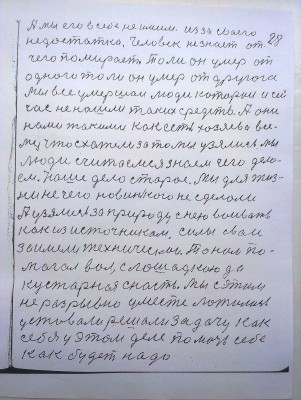 А мы его в себе не имеем. из за своего
недостатка, Человек незнает от 28
чего помирает. То ли он умер от
одного то ли он умер от другога
Мы все умершаи люди которыи и сей
час не нашли таких средств. А они
нами такими как есть хозяева все-
му, что скажем за то мы узялись мы
люди считаемся знаем чего дела-
ем. Наше дело старое. Мы для жиз-
ни не чего новинкого не сделали
А узялись за природу с нею воивать
как из источникам, силы свои
заимеем техническаи. То нам по-
магал вол, с лошадкою да
кустарная снасть. Мы с этим
не разрывно уместе лотилиць
уствовали решали задачу как
себя у этом деле помоч себе
как будет надо